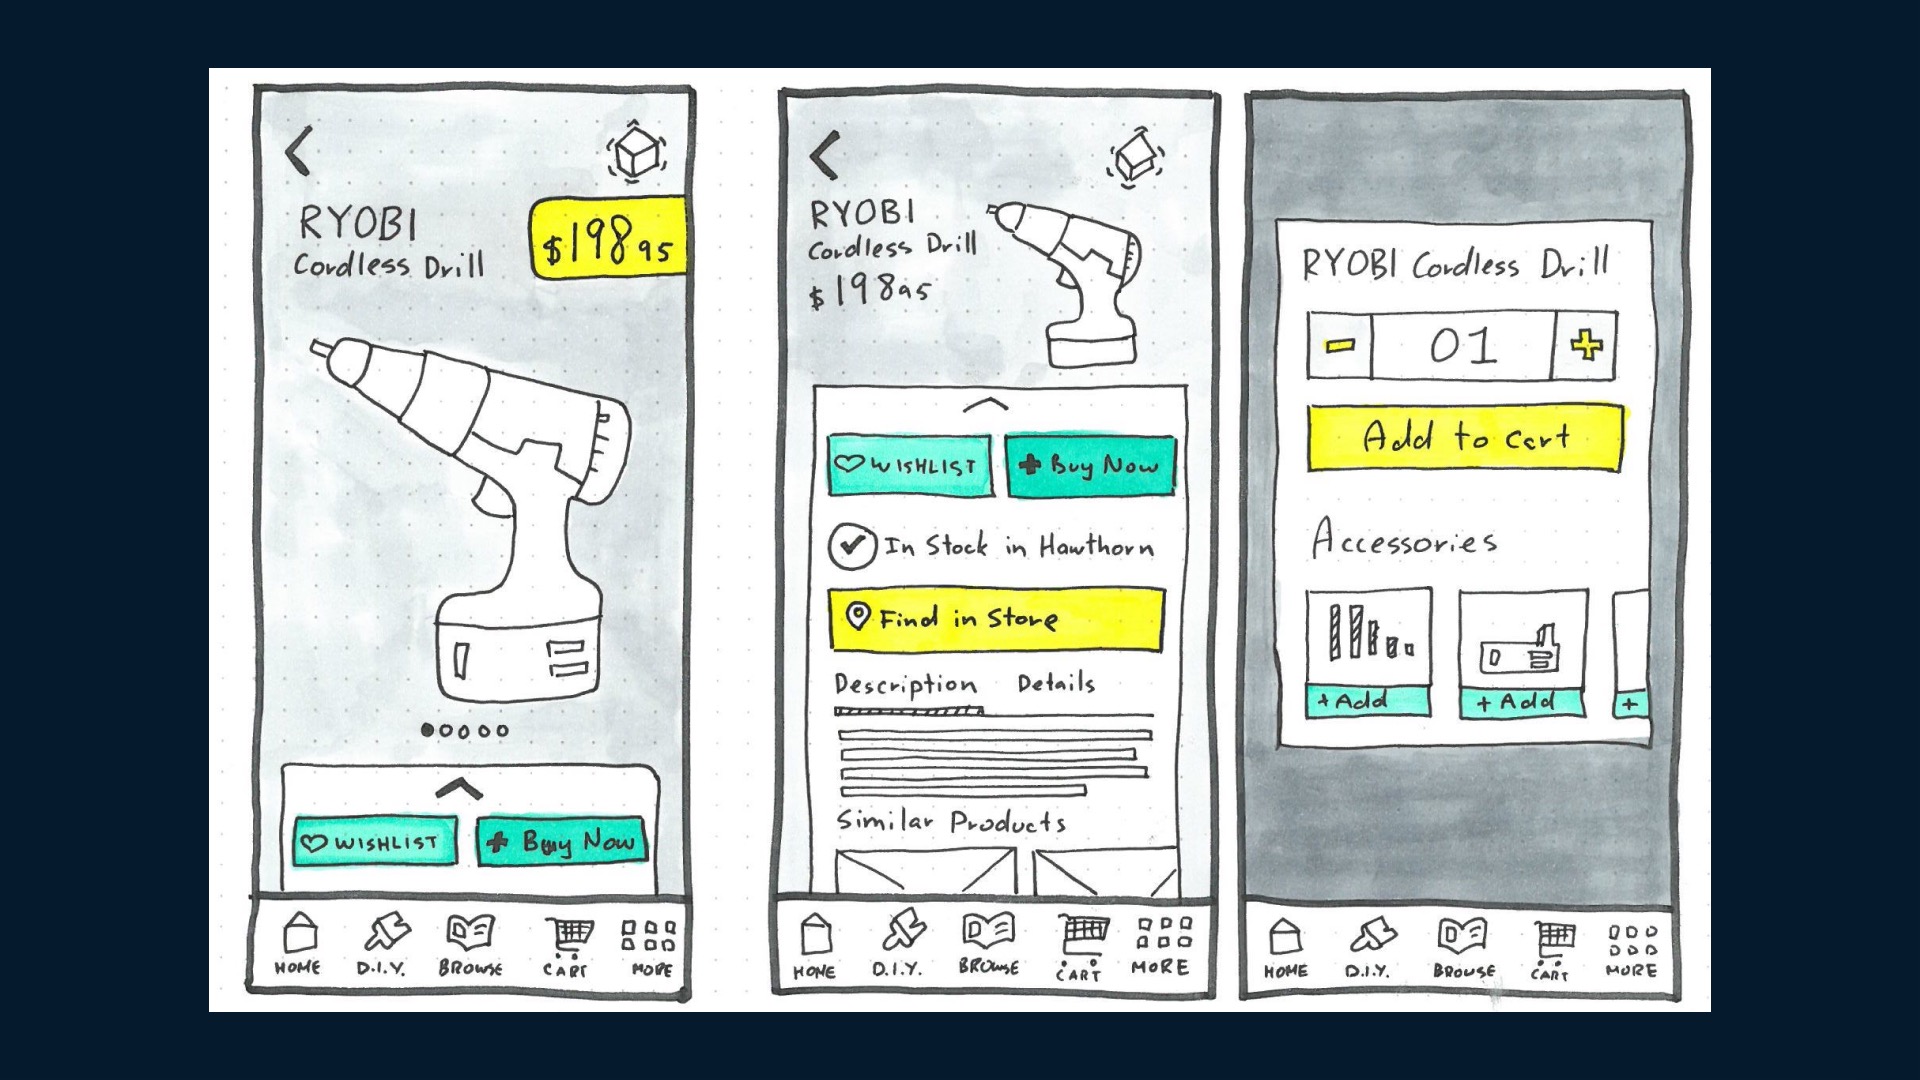 RYOBI
Cordless Drill
$198 95
WISHLIST
+ Buy Now
HOME
D.I.Y.
BROWSE
CART
MORE
RYOBI
Cordless Drill
$198 95
WISHLIST
+ Buy Now
In Stock in Hawthorn
Find in Store
Description Details
Similar Products
HOME
D.I.Y.
BROWSE
CART
MORE
RYOBI Cordless Drill
- 01 +
Add to cart
Accessories
+ Add
+ Add
+
HOME
D.I.Y.
BROWSE
CART
MORE